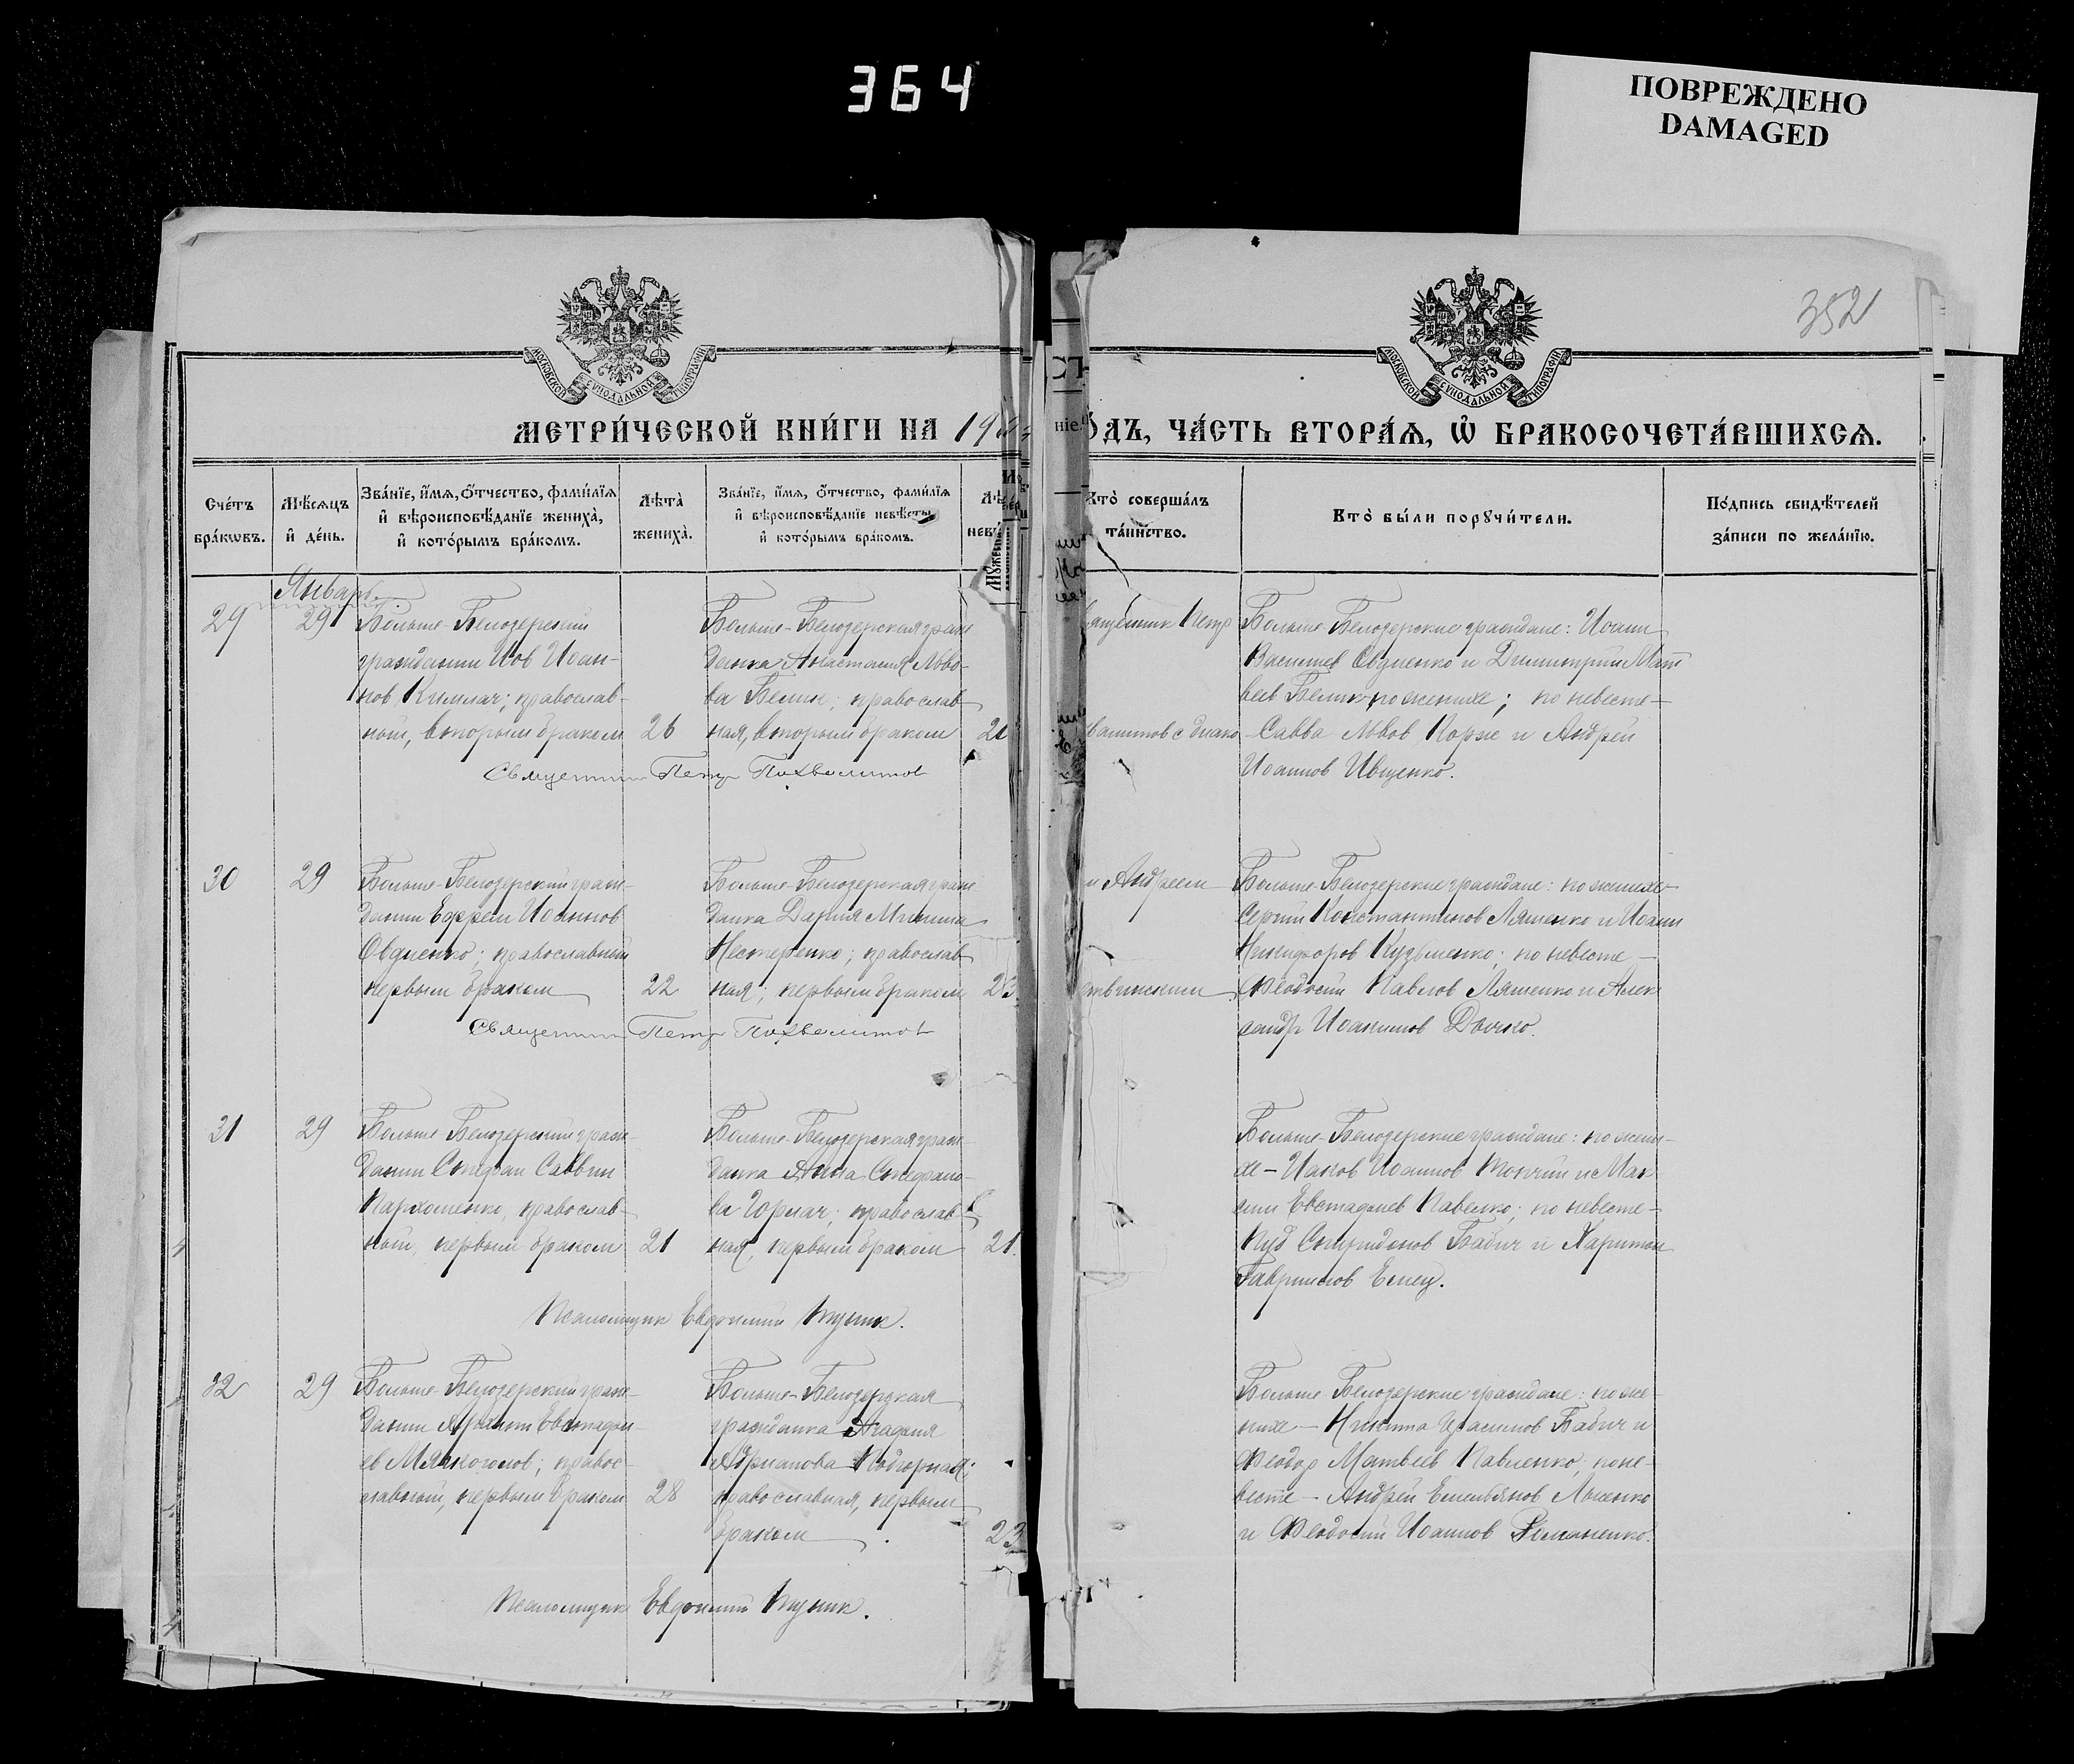 364
ПОВРЕЖДЕНО
DAMAGED
352
МОСКОВСКОЙ СѴНОДАЛЬНОЙ ТИПОГРАФІИ
МОСКОВСКОЙ СѴНОДАЛЬНОЙ ТИПОГРАФІИ
МЕТРИ́ЧЕСКОЙ КНИ́ГИ НА 19
О́ДЪ, ЧА́СТЬ ВТОРА́Я, Ѽ БРАКОСОЧЕТА́ВШИХСЯ.
Сче́тъ
бра́кѡвъ.
Мѣ́сяцъ
и҆ де́нь.
Зва́нїе, и҆́мя, ѻ҆́тчество, фами́лїя
и҆ вѣроисповѣ́данїе жениха̀,
и҆ кото́рымъ бра́комъ.
Лѣта̀
жениха̀.
Зва́нїе, и҆́мя, ѻ҆́тчество, фами́лїя
и҆ вѣроисповѣ́данїе невѣ́сты,
и҆ кото́рымъ бра́комъ.
Кто̀ соверша́лъ
та́инство.
Кто̀ бы́ли порꙋчи́тели.
По́дпись свидѣ́телей
за́писи по жела́нїю.
Январь
29
29
Больше-Белозерский
гражданин Иов Иоан-
нов Кишлач; православ-
ный, вторым браком
26
Больше-Белозерская граж
данка Анастасия Львo-
ва Белик; православ-
ная, вторым браком
21
Священник Петр Похвалитов
Петр
валитов с диако
Больше-Белозерские граждане: Иоанн
Васильев Овдиенко и Димитрий Мат
веев Белик по женихе; по невесте-
Савва Львов Корж и Андрей
Иоаннов Ивщенко.
30
29
Больше-Белозерский граж-
данин Ефрем Иоаннов
Овдиенко; православный
первым браком
22
Больше-Белозерская граж
данка Дария Минина
Нестеренко; православ
ная; первым браком
23
Священник Петр Похвалитов
м Андреем
твинским
Больше-Белозерские граждане: по женихе-
Сергий Константинов Ляшенко и Иоанн
Никифоров Кузьменко; по невесте-
Феодосий Павлов Ляшенко и Алек
сандр Иоакимов Дычко.
31
29
Больше Белозерский граж-
данин Стефан Саввин
Пархоменко, православ-
ный, первым браком
21
Больше-Белозерская граж-
данка Анна Стефано-
ва Горпач; православ-
ная, первым браком
21.
Больше-Белозерские граждане: по жени-
хе - Иаков Иоаннов Топчий и Мак
сим Евстафиев Павелко; по невесте-
Пуд Спиридонов Бабич и Харитон
Гавриилов Емец.
Псаломщик Евдоким Купик.
32
29
Больше-Белозерский граж-
данин Архипп Евстафи-
ев Мягкоголов; правос-
лавный, первым браком
28
Больше-Белозерская
гражданка Агафия
Адрианова Подгорная;
православная, первым
браком.
23
Больше-Белозерские граждане: по же-
нихе - Никита Ерасимов Бабич и
Феодор Матвеев Павленко, по не-
весте - Андрей Емельянов Лысенко
и Феодосий Иоаннов Романенко.
Псаломщик Евдоким Купик.